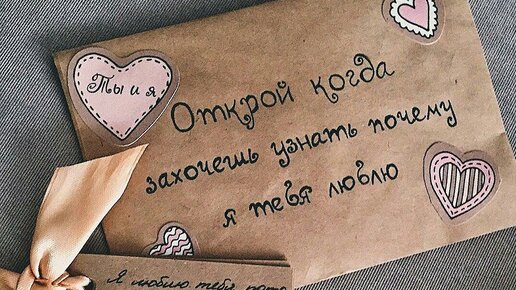 Ты и я
Открой когда
захочешь узнать почему
я тебя люблю
Я люблю тебя